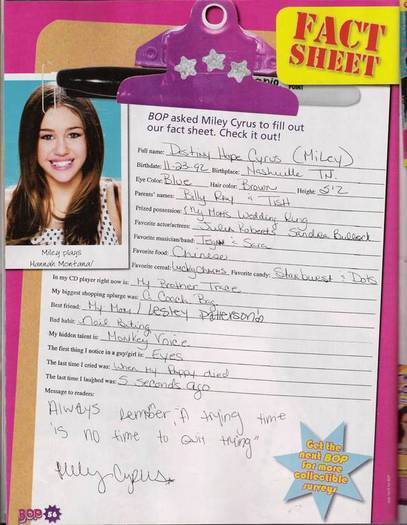 FACT
SHEET
BOP asked Miley Cyrus to fill out
our fact sheet. Check it out!
Full name: Destiny Hope Cyrus (Miley)
Birthdate: 11-23-92 Birthplace: Nashville TN.
Eye Color: Blue Hair color: Brown Height: 5'2
Parents' names: Billy Ray & Tish
Prized possession: My Mom's Wedding Ring
Favorite actor/actress: Julia Roberts Sandra Bullock
Favorite musician/band: Tegan & Sara
Favorite food: Chinese
Favorite cereal: Lucky Charms Favorite candy: Starburst & Dots
In my CD player right now is: My Brother Trace
My biggest shopping splurge was: a Coach Bag
Best friend: My Mom / Lesley Patterson
Bad habit: Nail Biting
My hidden talent is: Monkey Voice
The first thing I notice in a guy/girl is: Eyes
The last time I cried was: When My Pappy died
The last time I laughed was: 5 seconds ago
Message to readers:
Always remember, "A trying time
is no time to quit trying"
Miley Cyrus
Miley plays
Hannah Montana!
Get the
next BOP
for more
collectible
surveys
BOP 56